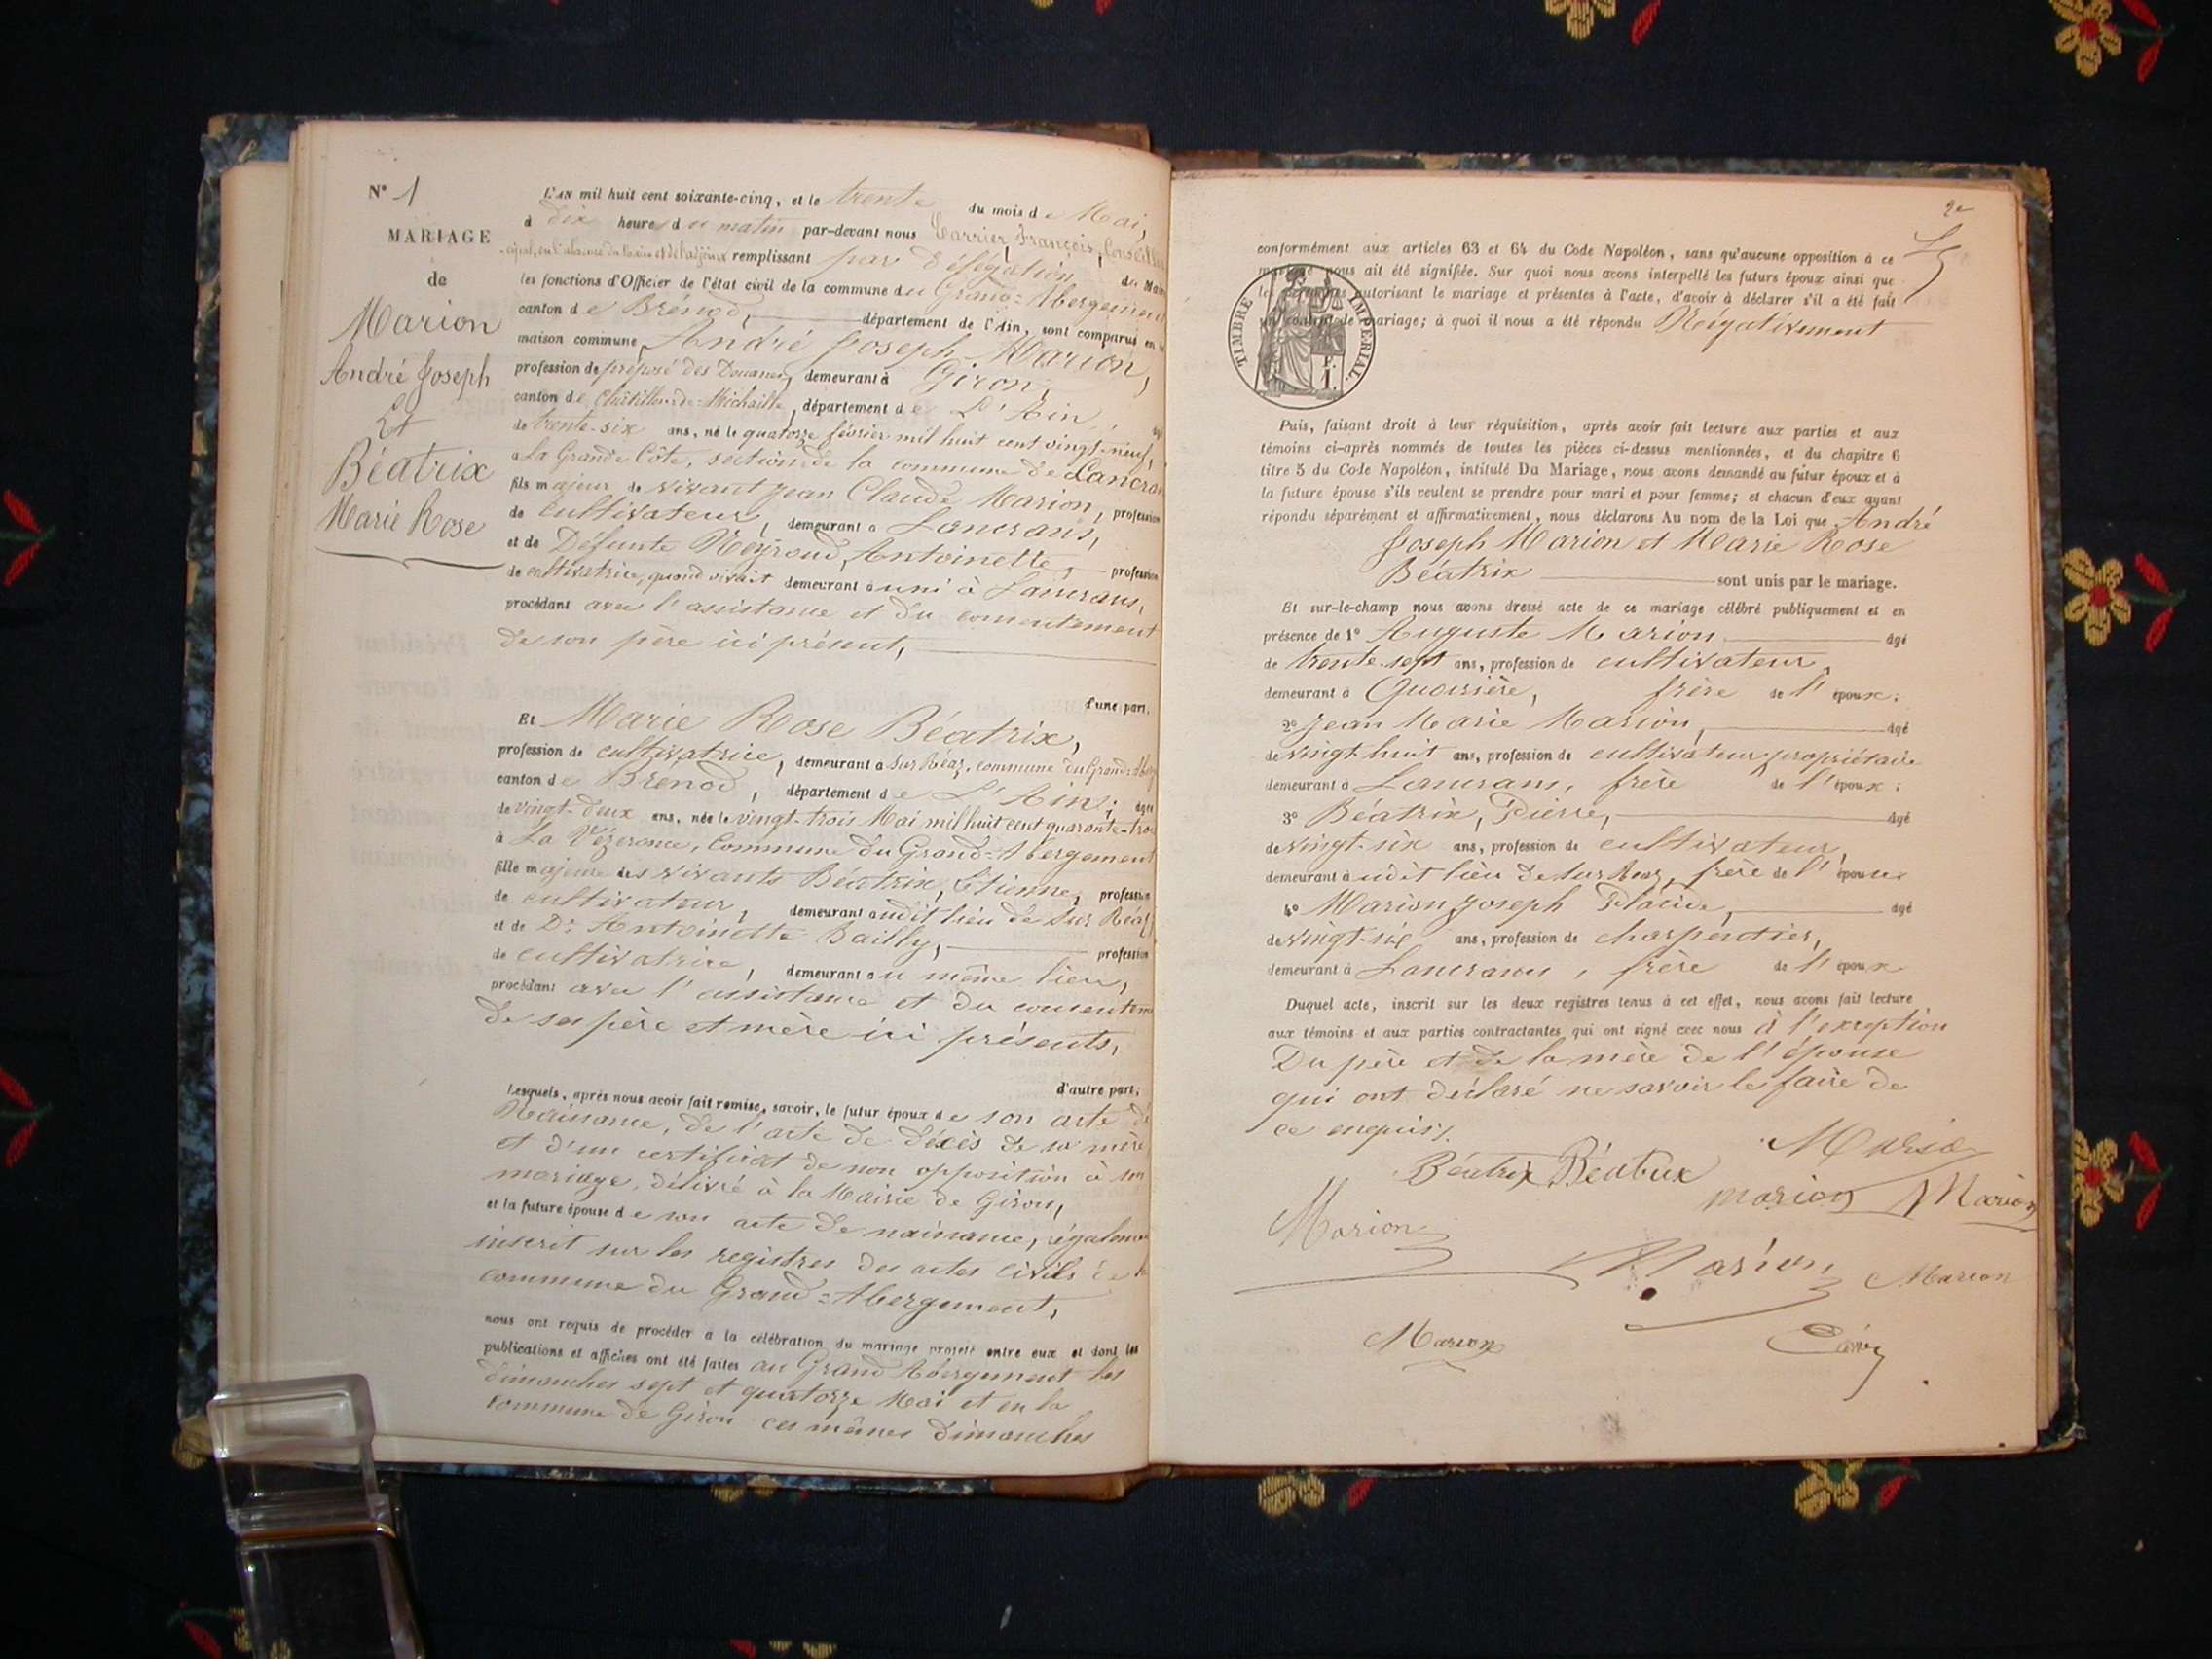 N° 1
MARIAGE
de
Marion
André Joseph
Et
Béatrix
Marie Rose
L'AN mil huit cent soixante-cinq, et le trente du mois de Mai,
à dix heures du matin par-devant nous Carrier François, Conseiller
remplissant par délégation du Maire
les fonctions d'Officier de l'état civil de la commune du Grand-Abergement
canton de Brénod, département de l'Ain, sont comparus en la
maison commune, André Joseph Marion,
profession de préposé des Douanes, demeurant à Giron,
canton de Châtillon-de-Michaille, département de L'Ain, âgé
de trente-six ans, né le quatorze février mil huit cent vingt-neuf,
à La Grande Côte, section de la commune de Lancrans
fils majeur de vivant Jean Claude Marion, profession
de cultivateur, demeurant à Lancrans,
et de Défunte Neyroud, Antoinette, profession
de cultivatrice, quand vivait demeurant à uni à Lancrans,
procédant avec l'assistance et du consentement
de son père ici présent,
d'une part.
Et Marie Rose Béatrix,
profession de cultivatrice, demeurant à Sur Réaz, commune du Grand-Aberg
canton de Brenod, département de L'Ain; âgée
de vingt-deux ans, née le vingt-trois Mai mil huit cent quarante-trois
à La Vézeronce, Commune du Grand-Abergement
fille majeure des vivants Béatrix, Etienne, profession
de cultivateur, demeurant audit lieu de Sur Réaz
et de De Antoinette Bailly, profession
de cultivatrice, demeurant au même lieu,
procédant avec l'assistance et du consentem
de ses père et mère ici présents,
d'autre part;
Lesquels, après nous avoir fait remise, savoir, le futur époux de son acte de
Naissance, de l'acte de décès de sa mère
et d'un certificat de non opposition à son
mariage, délivré à la Mairie de Giron,
et la future épouse de son acte de naissance, égalemen
inscrit sur les registres des actes civils de la
commune du Grand-Abergement,
nous ont requis de procéder à la célébration du mariage projeté entre eux et dont les
publications et affiches ont été faites au Grand Abergement les
dimanches sept et quatorze Mai et en la
commune de Giron ces mêmes dimanches
2e
conformément aux articles 63 et 64 du Code Napoléon, sans qu'aucune opposition à ce
mariage nous ait été signifiée. Sur quoi nous avons interpellé les futurs époux ainsi que
les personnes autorisant le mariage et présentes à l'acte, d'avoir à déclarer s'il a été fait
un contrat de mariage; à quoi il nous a été répondu Négativement
TIMBRE IMPERIAL.
Puis, faisant droit à leur réquisition, après avoir fait lecture aux parties et aux
témoins ci-après nommés de toutes les pièces ci-dessus mentionnées, et du chapitre 6
titre 5 du Code Napoléon, intitulé Du Mariage, nous avons demandé au futur époux et à
la future épouse s'ils veulent se prendre pour mari et pour femme; et chacun d'eux ayant
répondu séparément et affirmativement, nous déclarons Au nom de la Loi que André
Joseph Marion et Marie Rose
Béatrix sont unis par le mariage.
Et sur-le-champ nous avons dressé acte de ce mariage célébré publiquement et en
présence de 1° Auguste Marion âgé
de trente-sept ans, profession de cultivateur,
demeurant à frère de l'époux;
2° Jean Marie Marion, âgé
de vingt huit ans, profession de cultivateur propriétaire
demeurant à Lancrans, frère de l'époux;
3° Béatrix, Pierre, âgé
de vingt-six ans, profession de cultivateur,
demeurant à udit lieu de Sur Reaz, frère de l'épouse
4° Marion Joseph Placide, âgé
de vingt-six ans, profession de charpentier,
demeurant à Lancrans, frère de l'époux
Duquel acte, inscrit sur les deux registres tenus à cet effet, nous avons fait lecture
aux témoins et aux parties contractantes qui ont signé avec nous à l'exception
Du père et de la mère de l'épouse
qui ont déclaré ne savoir le faire de
ce enquis.
Marion
Béatrix Béatrix
marion Marion
Marion
Marion
Marion
Marion